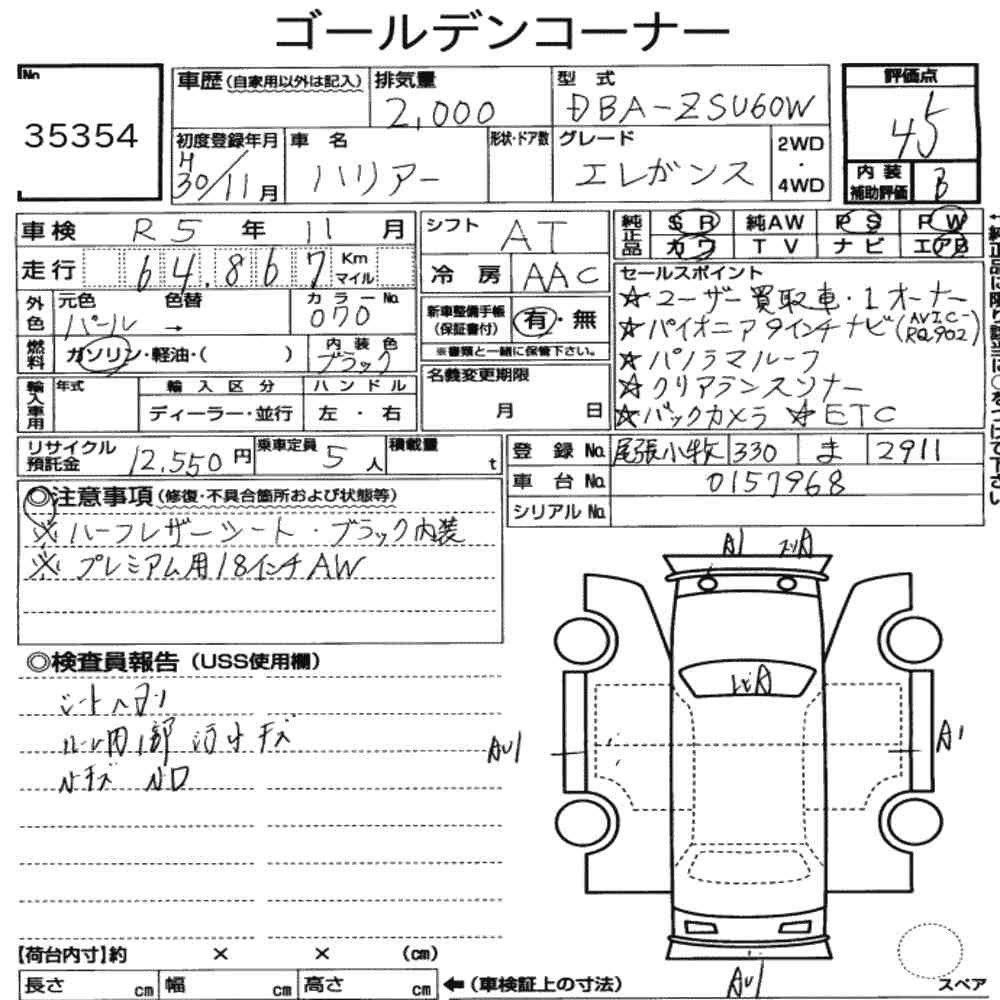 ゴールデンコーナー
No
35354
車歴 (自家用以外は記入)
排気量
2,000
型式
DBA-ZSU60W
評価点
45
初度登録年月
H
30/11月
車名
ハリアー
形状・ドア数
グレード
エレガンス
2WD
・
4WD
内装
補助評価
B
車検 R5年 11月
シフト AT
純正品
SR 純AW PS PW
カワ TV ナビ エアB
走行 64,867 Km
マイル
冷房 AAC
セールスポイント
☆ユーザー買取車・1オーナー
☆パイオニア9インチナビ(AVIC-RQ902)
☆パノラマルーフ
☆クリアランスソナー
☆バックカメラ ☆ETC
外色
元色 色替
パール →
カラーNo.
070
新車整備手帳
(保証書付)
有・無
※書類と一緒に保管下さい。
燃料
ガソリン・軽油・( )
内装色
ブラック
輸入車用
年式
輸入区分
ディーラー・並行
ハンドル
左・右
名義変更期限
月 日
リサイクル
預託金
12,550円
乗車定員
5人
積載量
t
登録No. 尾張小牧 330 ま 2911
車台No. 0157968
シリアルNo.
◎注意事項(修復・不具合箇所および状態等)
※ハーフレザーシート・ブラック内装
※プレミアム用18インチAW
◎検査員報告(USS使用欄)
シートヘタリ
内 部 汚れキズ
キズ
A1
AU1
A1
AU1
【荷台内寸】約 × × (cm)
長さ cm 幅 cm 高さ cm
←(車検証上の寸法)
スペア